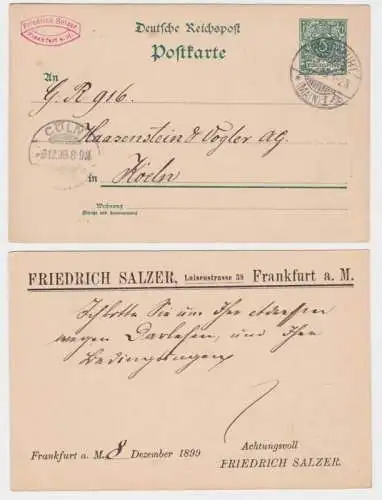 Friedrich Salzer
Frankfurt a. M.
Deutsche Reichspost
Postkarte
An
G. R 916.
Haasenstein & Vogler AG.
in Koeln
Wohnung
(Straße und Hausnummer)
CÖLN
FRIEDRICH SALZER, Luisenstrasse 38 Frankfurt a. M.
Ich bitte Sie um Ihre Adressen
wegen Darlehen, und Ihre
Bedingungen
Frankfurt a. M. 8 Dezember 1899
Achtungsvoll
FRIEDRICH SALZER.